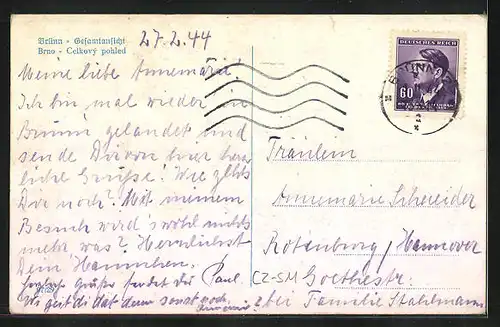 Brünn - Gesamtansicht
Brno - Celkový pohled
27.2.44
Meine liebe Annemarie!
Ich bin mal wieder in
Brünn gelandet und
sende Dir von hier herz-
liche Grüße! Wie gehts
Dir noch? Mit meinem
Besuch wird's wohl nichts
mehr was? Herzlichst
Dein Hannchen.
herzliche Grüße sendet dir Paul.
Wie geht dir das denn sonst noch
DEUTSCHES REICH
60
BRÜNN
Fräulein
Annemarie Schneider
Rotenburg/Hannover
CZ-SM Goethestr.
bei Familie Stahlmann